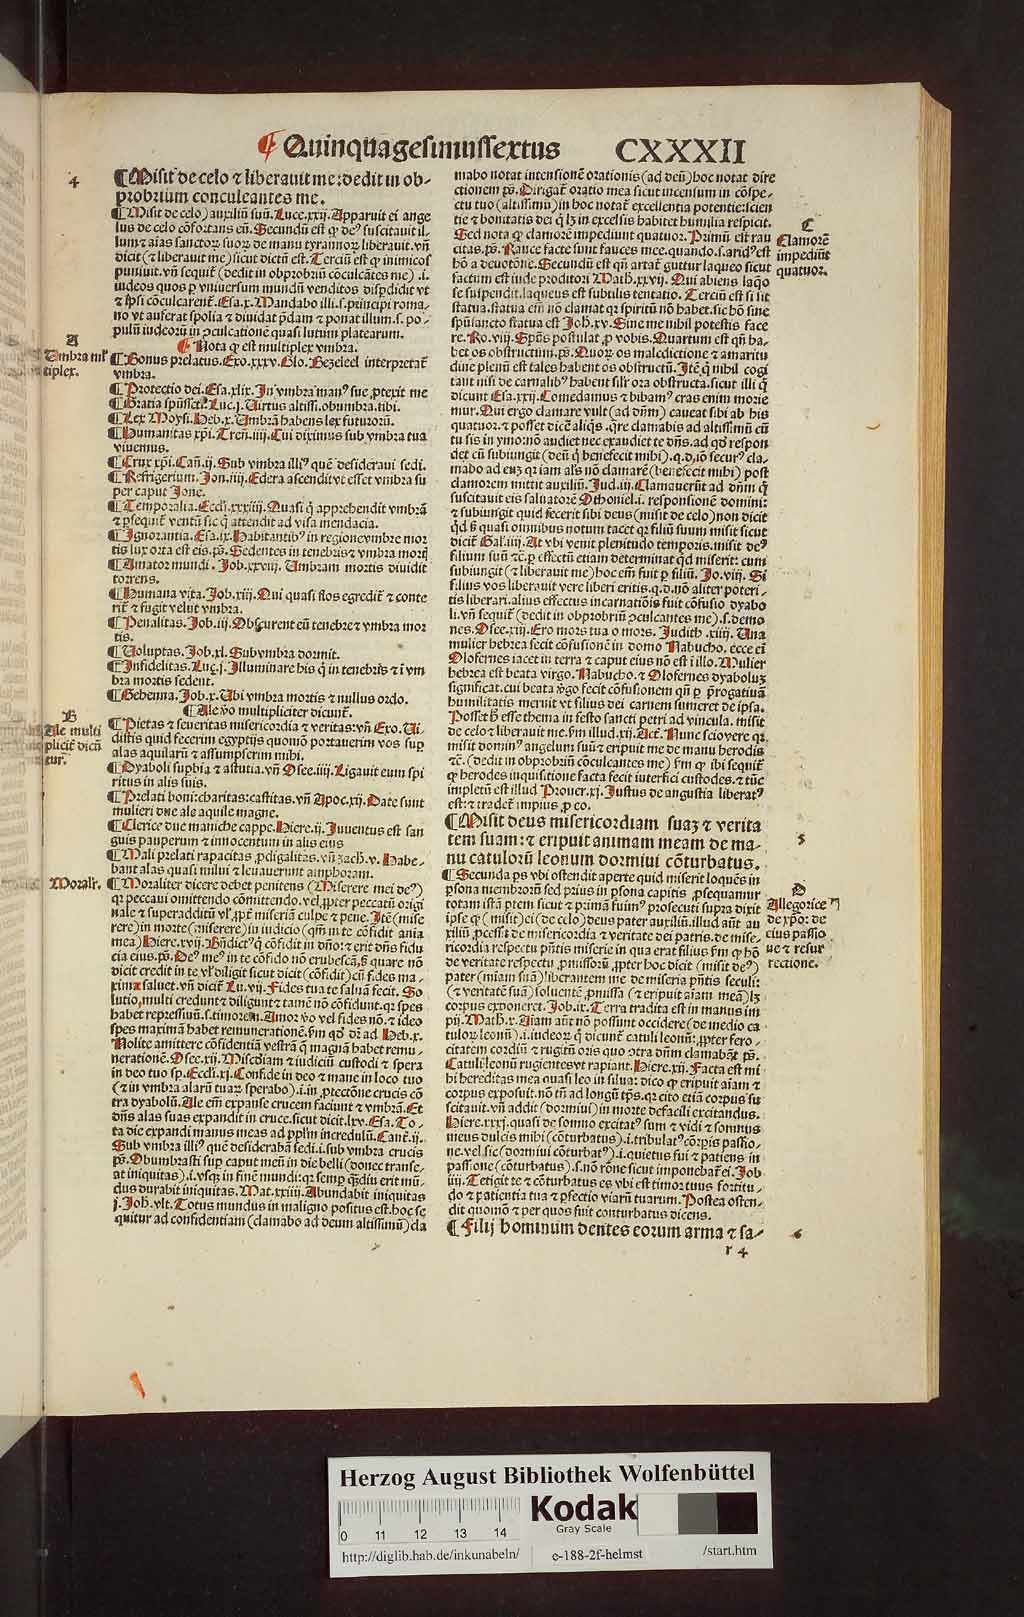 ¶ Quinquagesimussextus CXXXII
4
¶Misit de celo ⁊ liberauit me: dedit in ob-
probrium conculcantes me.
¶Misit de celo) auxiliũ suũ. Luce.xxij. Apparuit ei ange
lus de celo cõfortans eũ. Secundũ est ꝙ deꝰ suscitauit il-
lum ⁊ aĩas sanctoꝝ suoꝝ de manu tyrannoꝝ liberauit. vñ
dicit (⁊ liberauit me) sicut dictũ est. Terciũ est ꝙ inimicos
puniuit. vñ sequit̃ (dedit in obprobriũ cõculcãtes me) .i.
iudeos quos ꝑ vniuersum mundũ venditos disꝑdidit vt
⁊ ip̃i cõculcarent̃. Esa.x. Mandabo illi .s. principi roma-
no vt auferat spolia ⁊ diuidat p̃dam ⁊ ponat illum .s. po-
pulũ iudeoꝝ in ꝯculcationẽ quasi lutum platearum.
¶ Nota ꝙ est multiplex vmbra.
A
Umbra ml̃
tiplex.
¶Bonus prelatus. Exo.xxxv. Glo. Bezeleel interpretat̃
vmbra.
¶Protectio dei. Esa.xlix. In vmbra manꝰ sue ꝓtexit me
¶Gratia sp̃ussct̃i. Luc.j. Uirtus altissi. obumbra. tibi.
¶Lex Moysi. Heb.x. Umbrã habens lex futuroꝝ.
¶Humanitas xp̃i. Treñ.iiij. Cui diximus sub vmbra tua
viuemus.
¶Crux xp̃i. Cañ.ij. Sub vmbra illiꝰ quẽ desideraui sedi.
¶Refrigerium. Jon.iiij. Edera ascendit vt esset vmbra su
per caput Jone.
¶Temporalia. Eccli.xxxiiij. Quasi q̃ apprehendit vmbrã
⁊ ꝑsequit̃ ventũ sic q̃ attendit ad visa mendacia.
¶Ignorantia. Esa.ix. Habitantibꝰ in regione vmbre mor
tis lux orta est eis. ps̃. Sedentes in tenebris ⁊ vmbra mort̃
¶Amator mundi. Job.xxviij. Umbram mortis diuidit
torrens.
¶Humana vita. Job.xiij. Qui quasi flos egredit̃ ⁊ conte
rit̃ ⁊ fugit velut vmbra.
¶Penalitas. Job.iij. Obscurent eũ tenebre ⁊ vmbra mor
tis.
¶Uoluptas. Job.xl. Sub vmbra dormit.
¶Infidelitas. Luc.j. Illuminare his q̃ in tenebris ⁊ ĩ vm
bra mortis sedent.
¶Gehenna. Job.x. Ubi vmbra mortis ⁊ nullus ordo.
¶Ale v̓o multipliciter dicunt̃.
B
Ale multi
plicit̃ dicũ
tur.
¶Pietas ⁊ seueritas misericordia ⁊ veritas. vñ Exo. Ui-
distis quid fecerim egyptijs quomõ portauerim vos suꝑ
alas aquilarũ ⁊ assumpserim mihi.
¶Dyaboli supbia ⁊ astutia. vñ Osee.iiij. Ligauit eum spi
ritus in alis suis.
¶Prelati boni: charitas: castitas. vñ Apoc.xij. Date sunt
mulieri due ale aquile magne.
¶Clerice due maniche cappe. Hiere.ij. Inuentus est san
guis pauperum ⁊ innocentum in alis eius
¶Mali prelati rapacitas ꝓdigalitas. vñ zach̃.v. Habe-
bant alas quasi milui ⁊ leuauerunt amphoram.
Moralr̃.
¶Moraliter dicere debet penitens (Miserere mei deꝰ)
qꝛ peccaui omittendo cõmittendo. vel ꝓpter peccatũ origi
nale ⁊ superadditũ vl̃ ꝓpt̃ miseriã culpe ⁊ pene. Itẽ (mise
rere) in morte (miserere) in iudicio (qm̃ in te cõfidit aĩa
mea) Hiere.xvij. Bñdictꝰ q̃ cõfidit in dño: ⁊ erit dñs fidu
cia eius. ps̃. Deꝰ meꝰ in te cõfido nõ erubescã, ꝗ̃ quare nõ
dicit credit in te vl̃ diligit sicut dicit (cõfidit) cũ fides ma-
xima saluet. vñ dicit̃ Lu.vij. Fides tua te saluã fecit. So
lutio. multi credunt ⁊ diligunt ⁊ tamẽ nõ cõfidunt. qꝛ spes
habet repressiuũ .s. timorem. Amor v̓o vel fides nõ. ⁊ ideo
spes maximã habet remunerationẽ. s̃m qd̃ dr̃ ad Heb.x.
Nolite amittere cõfidentiã vestrã q̃ magnã habet remu-
nerationẽ. Osee.xij. Miseriã ⁊ iudiciũ custodi ⁊ spera
in deo tuo sp̃. Eccli.xj. Confide in deo ⁊ mane in loco tuo
(⁊ in vmbra alarũ tuaꝝ sperabo) .i. in ꝓtectõne crucis cõ
tra dyabolũ. Ale em̃ expanse crucem faciunt ⁊ vmbrã. Et
dñs alas suas expandit in cruce. sicut dicit̃.lxv. Esa. To-
ta die expandi manus meas ad pp̃l̃m incredulũ. Cant̃.ij.
Sub vmbra illiꝰ quẽ desiderabã sedi .i. sub vmbra crucis
ps̃. Obumbrasti suꝑ caput meũ in die belli (donec transe-
at iniquitas) .i. vsqꝫ in finẽ mundi: qꝛ semꝑ q̃diu erit mũ-
dus durabit iniquitas. Mat.xxiiij. Abundabit iniquitas
j. Joh̃. vlt̃. Totus mundus in maligno positus est. hoc se
quitur ad confidentiam (clamabo ad deum altissimũ) cla
mabo notat intensionẽ orationis (ad deũ) hoc notat dire
ctionem ps̃. Dirigat̃ oratio mea sicut incensum in cõspe-
ctu tuo (altissimũ) in hoc notat̃ excellentia potentie: scien
tie ⁊ bonitatis dei q̃ lꝫ in excelsis habitet humilia respicit.
Sed nota ꝙ clamorẽ impediunt quatuor. Primũ est rau
citas. ps̃. Rauce facte sunt fauces mee. quando .s. aridꝰ est
hõ a deuotõne. Secundũ est qñ artat̃ guttur laqueo sicut
factum est iude proditori Math̃.xxvij. Qui abiens laq̃o
se suspendit. laqueus est subtilis tentatio. Terciũ est si sit
statua. statua em̃ nõ clamat qꝛ spiritũ nõ habet. sic hõ sine
sp̃usancto statua est Joh̃.xv. Sine me nihil potestis face
re. Ro.viij. Sp̃us postulat ꝓ vobis. Quartum est qñ ha-
bet os obstructum. ps̃. Quoꝝ os maledictione ⁊ amaritu
dine plenũ est tales habent os obstructũ. Itẽ q̃ nihil cogi
tant nisi de carnalibꝰ habent sil̃r ora obstructa. sicut illi q̃
dicunt Esa.xxij. Comedamus ⁊ bibamꝰ cras enim morie
mur. Qui ergo clamare vult (ad dñm) caueat sibi ab his
quatuor. ⁊ posset dicẽ aliq̃s. qr̃e clamabis ad altissimũ cũ
tu sis in ymo: nõ audiet nec exaudiet te dñs. ad qd̃ respon
det cũ subiungit (deũ q̃ benefecit mihi) .q.d. iõ securꝰ cla-
mabo ad euꝫ qꝛ iam al̃s nõ clamarẽ (benefecit mihi) post
clamorem mittit auxiliũ. Jud.iij. Clamauerũt ad dñm q̃
suscitauit eis saluatorẽ Othoniel .i. responsionẽ domini:
⁊ subiungit quid fecerit sibi deus (misit de celo) non dicit
qd̃ ꝗ̃ quasi omnibus notum tacet qꝛ filiũ suum misit sicut
dicit̃ Gal̃.iiij. At vbi venit plenitudo temporis. misit deꝰ
filium suũ ⁊c̃. ꝑ effectũ etiam determinat qd̃ miserit: cum
subiungit (⁊ liberauit me) hoc em̃ fuit ꝑ filiũ. Jo.viij. Si
filius vos liberauit vere liberi eritis. q.d. nõ aliter poteri-
tis liberari. alius effectus incarnatiõis fuit cõfusio dyabo
li. vñ sequit̃ (dedit in obprobriũ ꝯculcantes me) .s. demo
nes. Osee.xiij. Ero mors tua o mors. Judith.xiiij. Una
mulier hebrea fecit cõfusionẽ in domo Nabucho. ecce eĩ
Olofernes iacet in terra ⁊ caput eius nõ est ĩ illo. Mulier
hebrea est beata virgo. Nabucho. ⁊ Olofernes dyaboluꝫ
significat. cui beata v̓go fecit cõfusionem qñ ꝑ p̃rogatiuã
humilitatis meruit vt filius dei carnem sumeret de ipsa.
Posset hͦ esse thema in festo sancti petri ad vincula. misit
de celo ⁊ liberauit me. s̃m illud.xij. Act̃. Nunc scio vere qꝛ
misit dominꝰ angelum suũ ⁊ eripuit me de manu herodis
⁊c̃. (dedit in obprobriũ cõculcantes me) s̃m ꝙ ibi sequit̃
ꝙ herodes inquisitione facta fecit interfici custodes. ⁊ tũc
impletũ est illud Prouer.xj. Justus de angustia liberatꝰ
est: ⁊ tradet̃ impius ꝓ eo.
C
Clamorẽ
impediũt
quatuor.
5
¶Misit deus misericordiam suaꝫ ⁊ verita
tem suam: ⁊ eripuit animam meam de ma-
nu catulorũ leonum dormiui cõturbatus.
D
Allegorice
de xp̃o: de
eius passio
ne ⁊ resur
rectione.
¶Secunda ps vbi ostendit aperte quid miserit loquẽs in
ꝑsona membrorũ sed prius in ꝑsona capitis ꝓsequamur
totam istã ptem sicut ⁊ primã fuimꝰ prosecuti supra dixit
ipse ꝙ (misit) ei (de celo) deus pater auxiliũ. illud aũt au
xiliũ ꝓcessit de misericordia ⁊ veritate dei patris. de mise-
ricordia respectu p̃ntis miserie in qua erat filius s̃m ꝙ hõ
de veritate respectu ꝓmissoꝝ. ꝓpter hoc dicit (misit deꝰ)
pater (mĩam suã) liberantem me de miseria p̃ntis seculi:
(⁊ veritatẽ suã) soluentẽ ꝓmissa (⁊ eripuit aĩam meã) lꝫ
corpus exponeret̃. Job.ix. Terra tradita est in manus im
pij. Math̃.x. Aĩam aũt nõ possunt occidere (de medio ca
tuloꝝ leonũ) .i. iudeoꝝ q̃ dicunt̃ catuli leonũ: ꝓpter fero-
citatem cordiũ ⁊ rugitũ oris quo ꝯtra dñm clamabãt ps̃.
Catuli leonũ rugientes vt rapiant. Hiere.xij. Facta est mi
hi hereditas mea quasi leo in silua: dico ꝙ eripuit aĩam ⁊
corpus exposuit. nõ tñ ad longũ tp̃s. qꝛ cito etiã corpus su
scitauit. vñ addit (dormiui) in morte de facili excitandus.
Hiere.xxxj. quasi de somno excitatꝰ sum ⁊ vidi ⁊ somnus
meus dulcis mihi (cõturbatus) .i. tribulatꝰ cõꝛpis passio-
ne. vel sic (dormiui cõturbatꝰ) .i. quietus fui ⁊ patiens in
passione (cõturbatus) .s. nõ rõne sicut imponebat̃ ei. Job
iiij. Tetigit te ⁊ cõturbatus es vbi est timor tuus fortitu-
do ⁊ patientia tua ⁊ ꝑfectio viarũ tuarum. Postea osten-
dit quomõ ⁊ per quos fuit conturbatus dicens.
6
¶Filij hominum dentes eorum arma ⁊ sa-
r 4
Herzog August Bibliothek Wolfenbüttel
0 11 12 13 14
Kodak
Gray Scale
http://diglib.hab.de/inkunabeln/ e-188-2f-helmst /start.htm